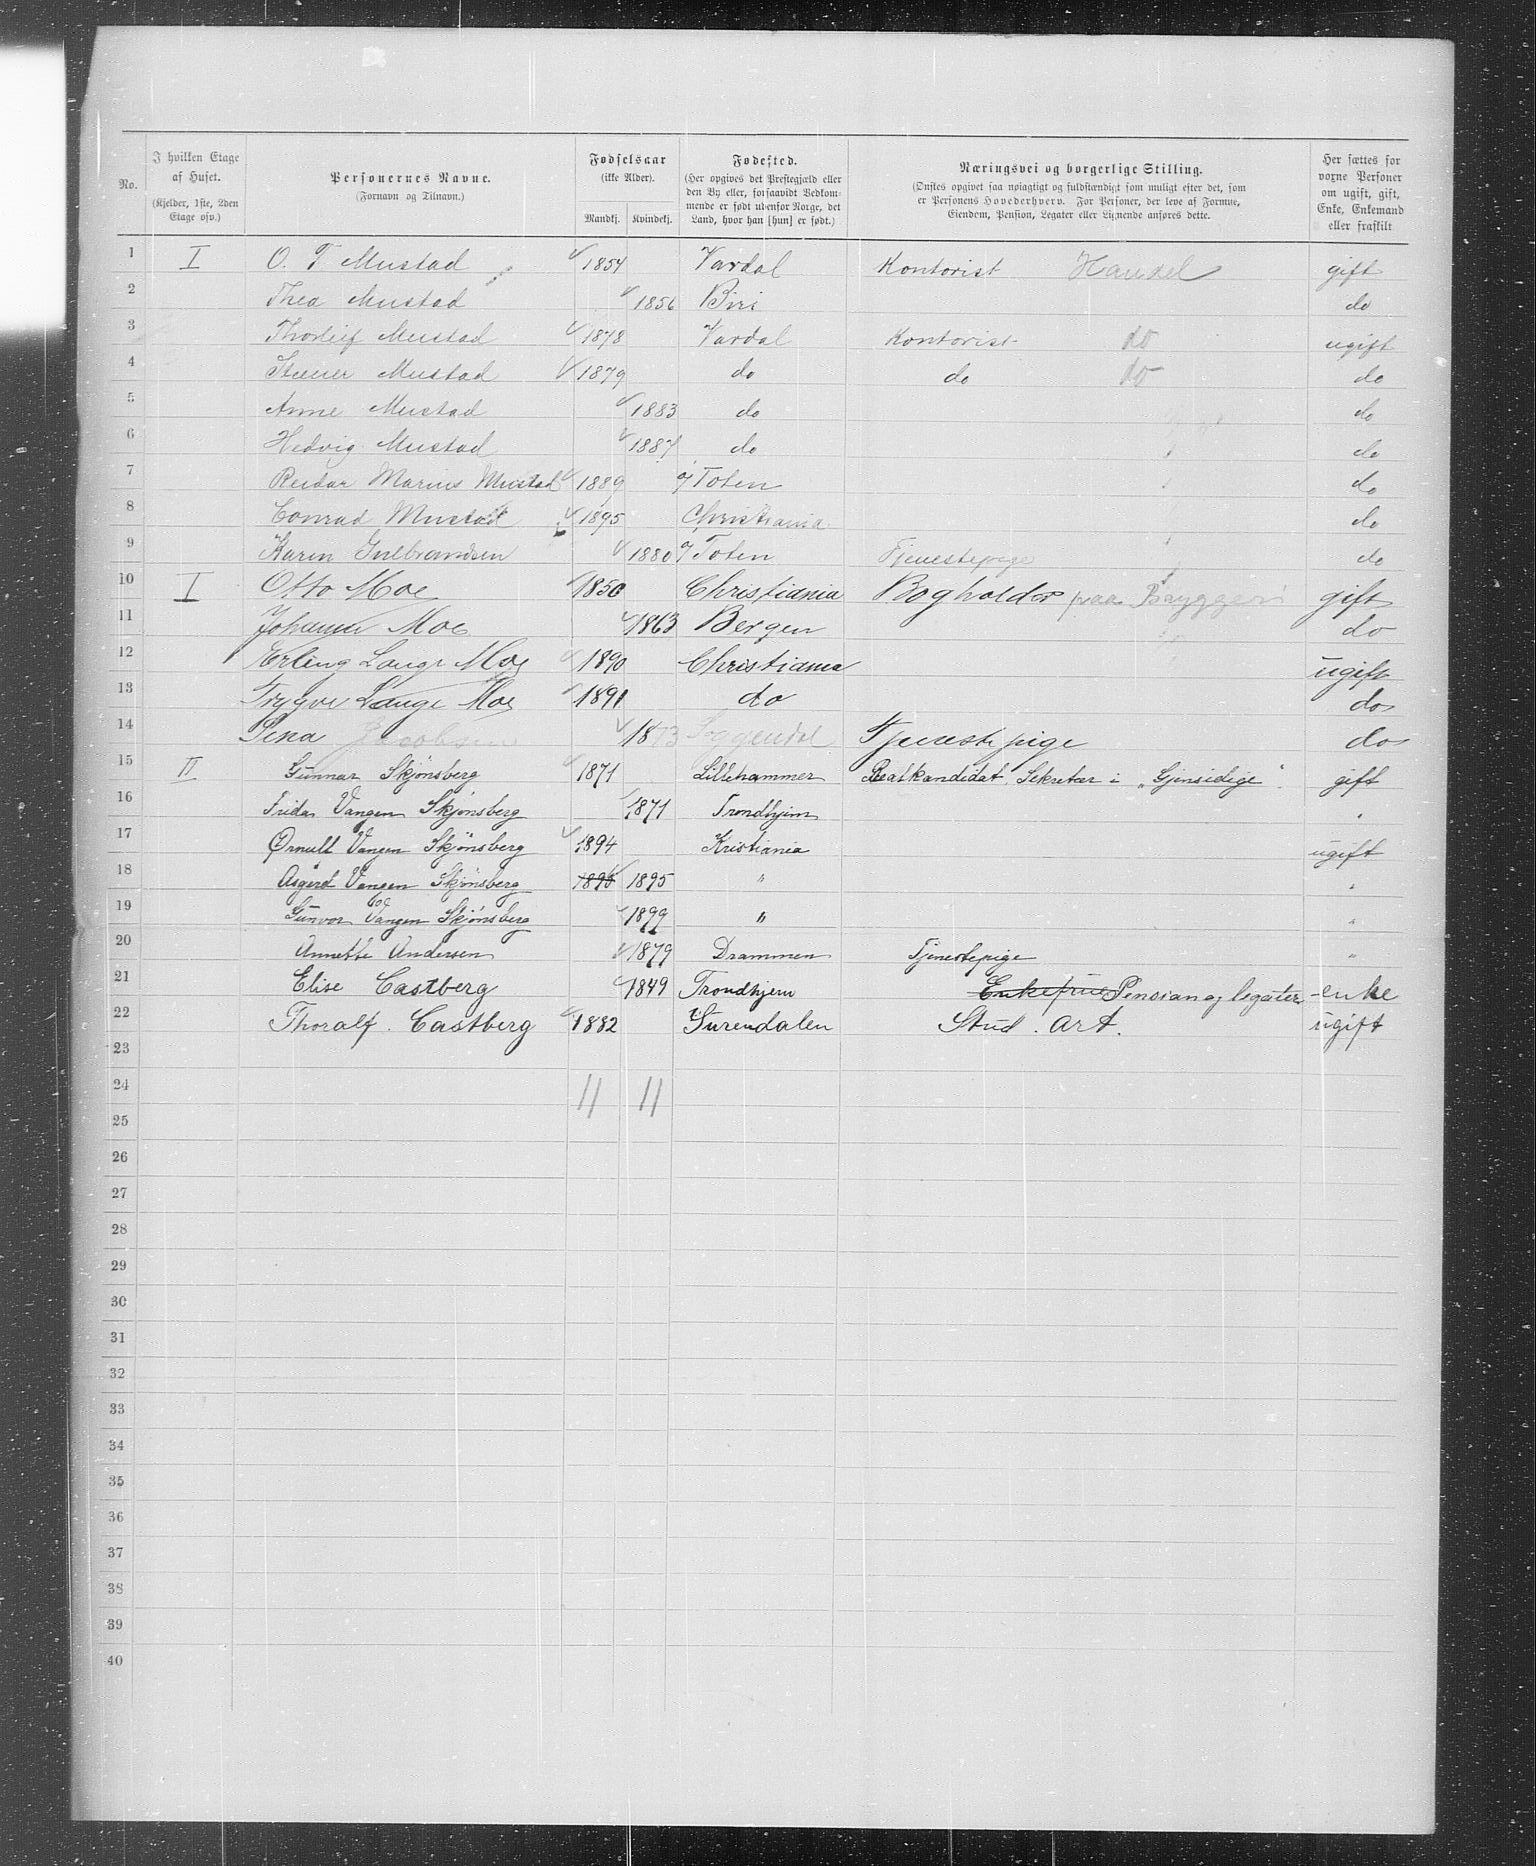 No. I hvilken Etage af Huset. (Kjelder, 1ste, 2den Etage osv.) Personernes Navne. (Fornavn og Tilnavn.) Fødselsaar (ikke Alder). Mandkj. Kvindekj. Fødested. (Her opgives det Prestegjæld eller den By eller, forsaavidt Vedkommende er født udenfor Norge, det Land, hvor han [hun] er født.) Næringsvei og borgerlige Stilling. (Ønskes opgivet saa nøiagtigt og fuldstændigt som muligt efter det, som er Personens Hovederhverv. For Personer, der leve af Formue, Eiendom, Pension, Legater eller Lignende anføres dette. Her sættes for voxne Personer om ugift, gift, Enke, Enkemand eller fraskilt
1 I O. T. Mustad 1854 Vardal Kontorist Handel gift
2 Thea Mustad 1856 Biri do
3 Thorleif Mustad 1878 Vardal Kontorist do ugift
4 Mustad 1879 do do do do
5 Anne Mustad 1883 do do
6 Hedvig Mustad 1887 do do
7 Reidar Marius Mustad 1889 Toten do
8 Conrad Mustad 1895 Christiania do
9 Karen Gulbrandsen 1880 Toten Tjenestepige do
10 I Otto Moe 1850 Christiania Bogholder paa Bryggeri gift
11 Johanne Moe 1863 Bergen do
12 Erling Lange Moe 1890 Christiania ugift
13 Trygve Lange Moe 1891 do do
14 Jacobsen 1873 Soggendal Tjenestepige do
15 II Gunnar Skjønsberg 1871 Lillehammer Realkandidat, Sekretær i „Gjensidige“. gift
16 Frida Vangen Skjønsberg 1871 Trondhjem "
17 Ørnulf Vangen Skjønsberg 1894 Kristiania ugift
18 Asgerd Vangen Skjønsberg 1895 1895 " "
19 Gunvor Vangen Skjønsberg 1899 " "
20 Annette Andersen 1879 Drammen Tjenestepige "
21 Elise Castberg 1849 Trondhjem Enkefrue Pension og legater enke
22 Thoralf Castberg 1882 Surendalen Stud. art. ugift
23
24 11 11
25
26
27
28
29
30
31
32
33
34
35
36
37
38
39
40